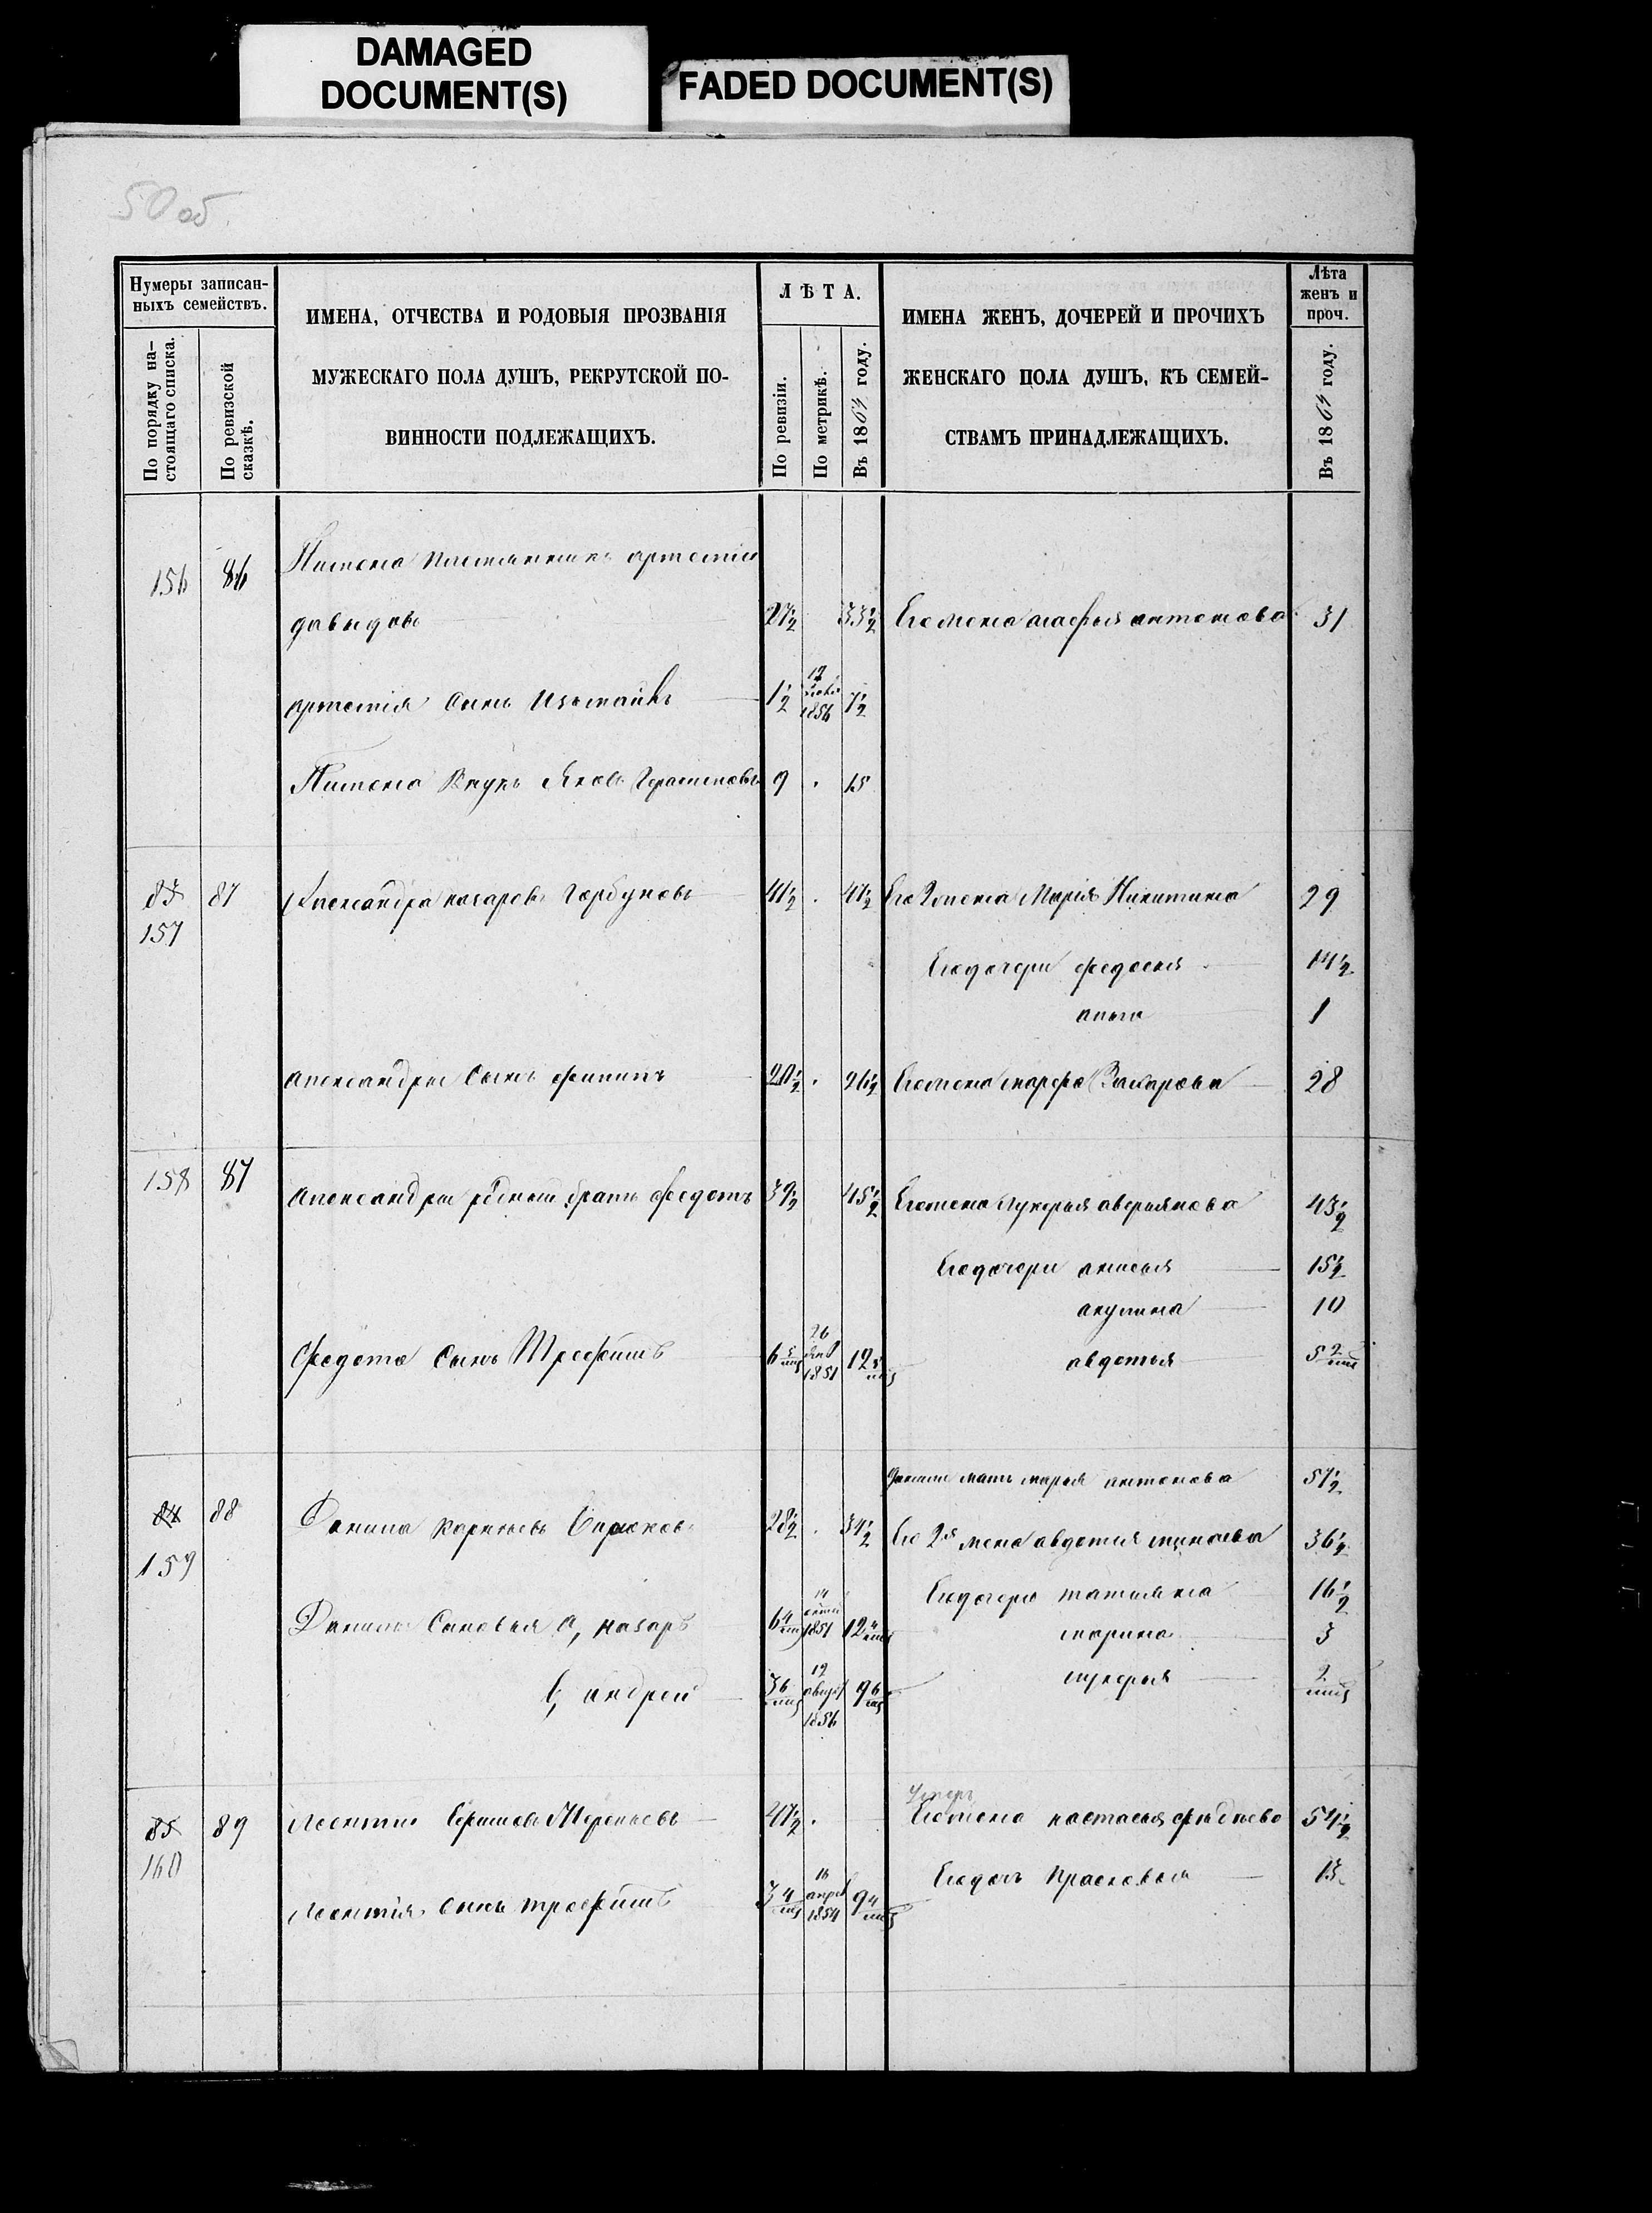 DAMAGED
DOCUMENT(S)
FADED DOCUMENT(S)
50 об.
Нумеры записан-
ныхъ семействъ.
По порядку на-
стоящаго списка.
По ревизской
сказкѣ.
ИМЕНА, ОТЧЕСТВА И РОДОВЫЯ ПРОЗВАНІЯ
МУЖЕСКАГО ПОЛА ДУШЪ, РЕКРУТСКОЙ ПО-
ВИННОСТИ ПОДЛЕЖАЩИХЪ.
ЛѢТА.
По ревизіи.
По метрикѣ.
Въ 1864 году.
ИМЕНА ЖЕНЪ, ДОЧЕРЕЙ И ПРОЧИХЪ
ЖЕНСКАГО ПОЛА ДУШЪ, КЪ СЕМЕЙ-
СТВАМЪ ПРИНАДЛЕЖАЩИХЪ.
Лѣта
женъ и
проч.
Въ 1864 году.
156 86 Пимена племянникъ артемій
давыдовъ 27½ 33½ Его жена агафья антонова 31
артемія сынъ 1½ 1856 7½
Пимена Внукъ Яковъ Герасимовъ 9 15
83 87 Александра назаровъ Горбуновъ 41½ 47½ Его 2 жена Марія Никитина 29
157
Его дочери федосья 14½
анна 1
александра Сынъ филипъ 20½ 26½ Его жена марфа Захарова 28
158 87 александра родной братъ федотъ 39½ 45½ Его жена лукерья аверьянова 43½
Его дочери анисья 15½
акулина 10
Федота Сынъ Трофимъ 6 5 мц 26 1851 12 5 мц авдотья 5 2 мца
данилы мать марья антонова 57½
84 88 Данила карпьевъ 28½ 34½ Его 2я жена авдотья минаева 36½
159
Его дочери татьяна 16½
Данилы Сыновья а, назаръ 6 4 мц 14 1851 12 4 мц марина 3
б, андрей 3 6 мц 12 август 1856 9 6 мц лукерья 2 мца
85 89 леонтій 47½ Умеръ Его жена настасья 54½
160
Его дочь Прасковья 13
леонтія сынъ трофимъ 3 4 мц 16 апрел 1854 9 4 мц